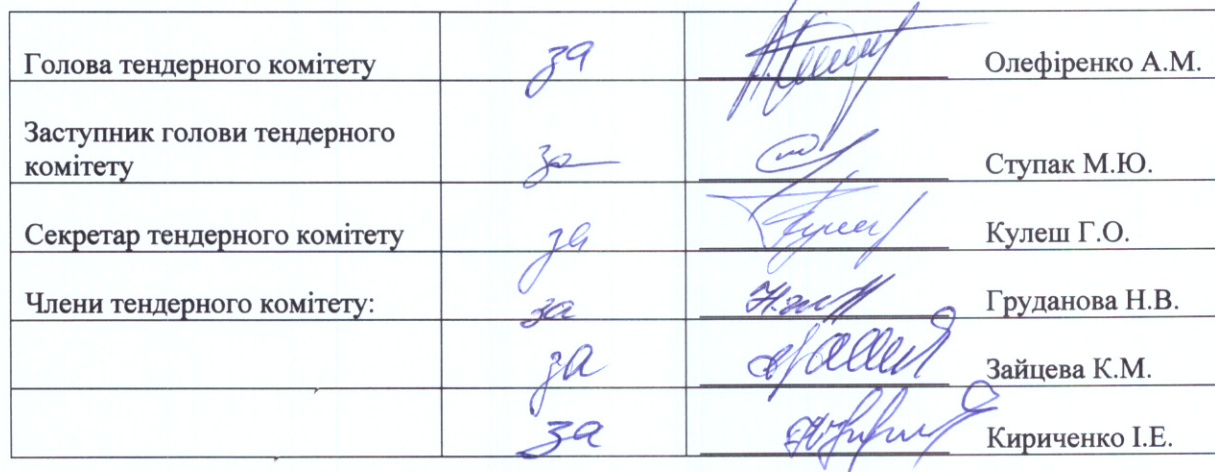 Голова тендерного комітету за Олефіренко А.М.
Заступник голови тендерного
комітету за Ступак М.Ю.
Секретар тендерного комітету за Кулеш Г.О.
Члени тендерного комітету: за Груданова Н.В.
за Зайцева К.М.
за Кириченко І.Е.